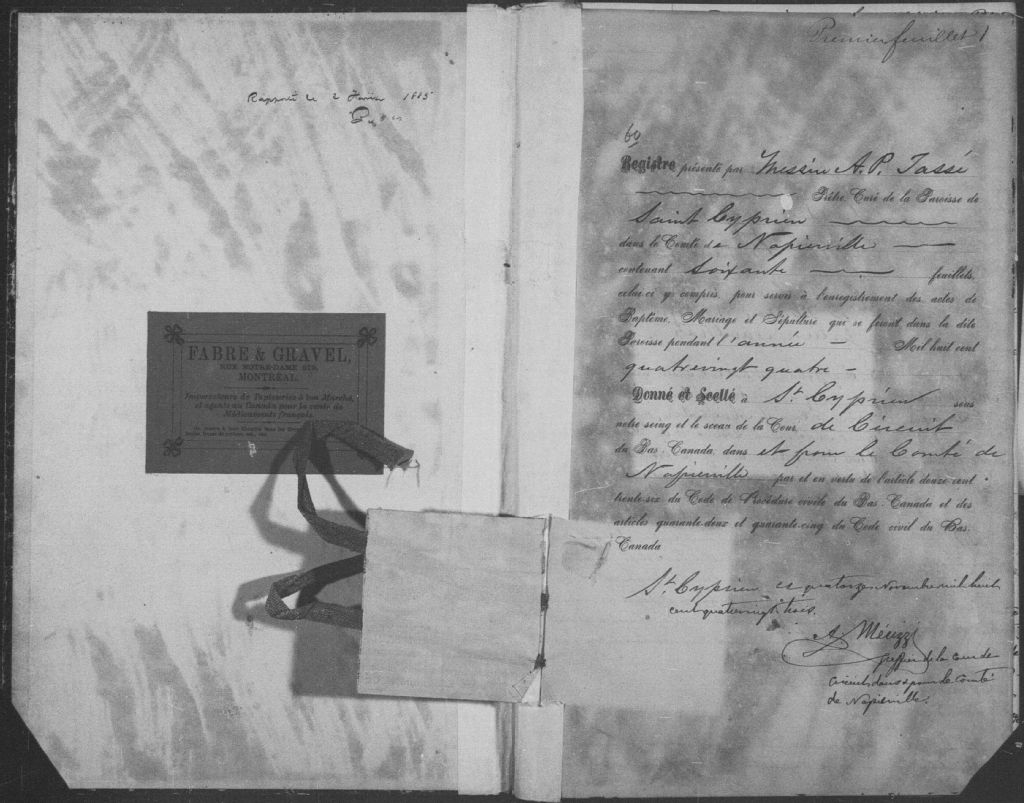 Rapporté le 2 1885
FABRE & GRAVEL,
RUE NOTRE-DAME 219,
MONTRÉAL.
Importateurs de Tapisseries à bon Marché,
et agents au Canada pour la vente de
Médicaments français.
Premier feuillet 1
60
Registre présenté par Messire A. P. Tassé
Prêtre, Curé de la Paroisse de
Saint Cyprien
dans le Comté de Napierville
contenant Soixante feuillets,
celui-ci y compris, pour servir à l'enregistrement des actes de
Baptême, Mariage et Sépulture qui se feront dans la dite
Paroisse pendant l'année - Mil huit cent
quatrevingt quatre -
Donné et Scellé à St Cyprien sous
notre seing et le sceau de la Cour de Circuit
du Bas-Canada, dans et pour le Comté de
Napierville par et en vertu de l'article douze cent
trente-six du Code de Procédure civile du Bas-Canada et des
articles quarante-deux et quarante-cinq du Code civil du Bas-
Canada
St Cyprien ce quatorze Novembre mil huit
cent quatrevingt trois.
Greffier de la Cour de
Circuit dans & pour le Comté
de Napierville.